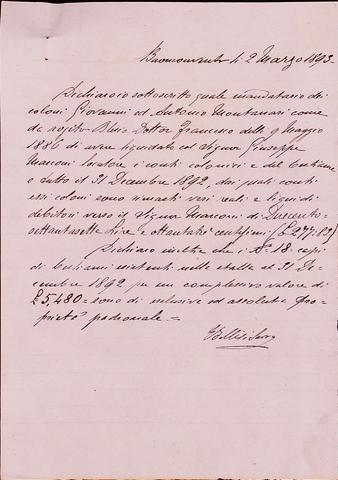 Buonconvento li 2 Marzo 1893.
Dichiaro io sottoscritto quale mandatario dei
coloni Giovanni ed Antonio Montanari come
da rogito Dottor Francesco delli 9 Maggio
1886 di aver liquidato col Signor Giuseppe
Marconi locatore i conti colonici e del bestiame
a tutto il 31 Dicembre 1892, dai quali conti
essi coloni sono rimasti veri reali e liquidi
debitori verso il Signor Marconi di Duecento-
settantasette Lire e ottantatre centesimi (£ 277.83)
Dichiaro inoltre che i N.º 18 capi
di bestiami esistenti nelle stalle al 31 Di-
cembre 1892 per un complessivo valore di
£ 5,480 = sono di esclusiva ed assoluta pro-
prietà padronale. =